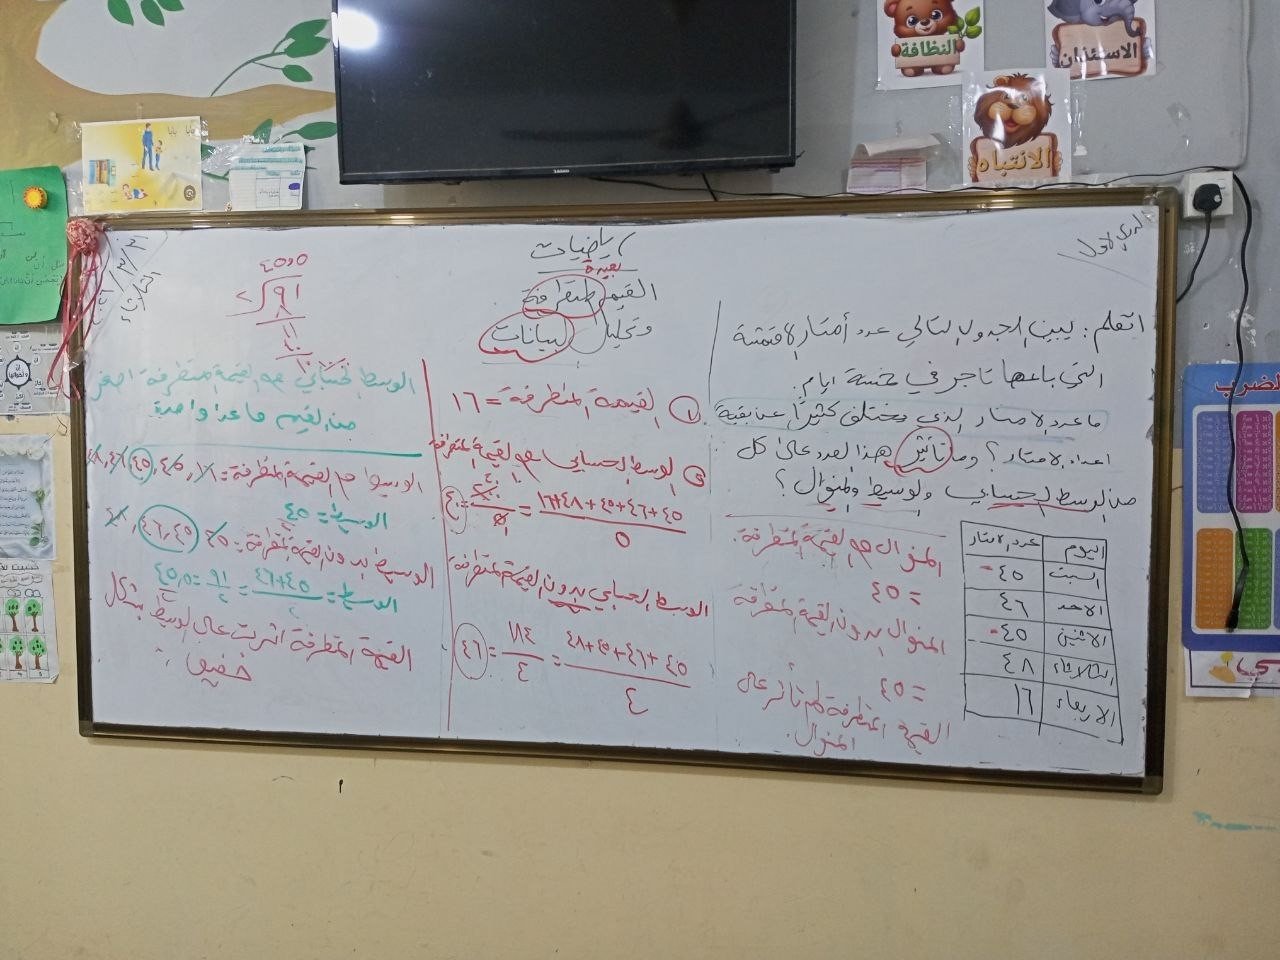 النظافة
الاستئذان
الانتباه
بابا بابا
رياضيات
بعيدة
القيم المتطرفة
وتحليل البيانات
الدرس الأول
الثلاثاء
اتعلم: يبين الجدول التالي عدد أمتار الاقمشة
التي باعها تاجر في خمسة ايام.
ما عدد الامتار الذي يختلف كثيرًا عن بقية
اعداد الامتار؟ وما تأثير هذا العدد على كل
من الوسط الحسابي والوسيط والمنوال؟
اليوم عدد الامتار
السبت ٤٥
الاحد ٤٦
الاثنين ٤٥
الثلاثاء ٤٨
الاربعاء ١٦
المنوال مع القيمة المتطرفة.
= ٤٥
المنوال بدون القيمة المتطرفة
= ٤٥
القيمة المتطرفة لم تأثر على
المنوال.
١ القيمة المتطرفة = ١٦
٢ الوسط الحسابي مع القيمة المتطرفة
٤٥+٤٦+٤٥+٤٨+١٦
٥
= ٤٠
الوسط الحسابي بدون القيمة المتطرفة
٤٥+٤٦+٤٥+٤٨ = ١٨٤ = ٤٦
٤ ٤
٤٥٫٥
٢ ٩١
الوسط الحسابي مع القيمة المتطرفة اصغر
من القيم ما عدا واحدة.
الوسيط مع القيمة المتطرفة = ١٦، ٤٥، ٤٥، ٤٦، ٤٨
الوسيط = ٤٥
الوسيط بدون القيمة المتطرفة = ٤٥، ٤٥، ٤٦، ٤٨
الوسيط = ٤٥+٤٦ = ٩١ = ٤٥٫٥
٢ ٢
القيمة المتطرفة اثرت على الوسيط بشكل
خفيف.
الضرب